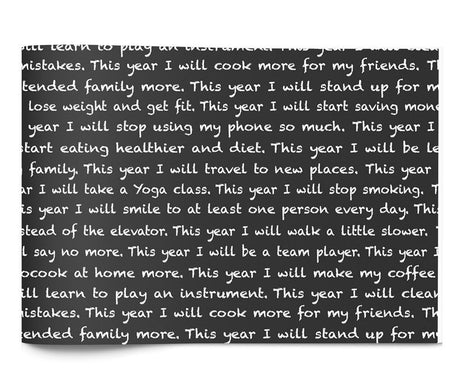 will learn to play an instrument. This year I will
mistakes. This year I will cook more for my friends. Th
tended family more. This year I will stand up for m
lose weight and get fit. This year I will start saving mone
year I will stop using my phone so much. This year I
start eating healthier and diet. This year I will be le
family. This year I will travel to new places. This year
ar I will take a Yoga class. This year I will stop smoking. T
is year I will smile to at least one person every day. Thi
stead of the elevator. This year I will walk a little slower.
l say no more. This year I will be a team player. This year I
ocook at home more. This year I will make my coffee
ill learn to play an instrument. This year I will clean
mistakes. This year I will cook more for my friends. Th
tended family more. This year I will stand up for m